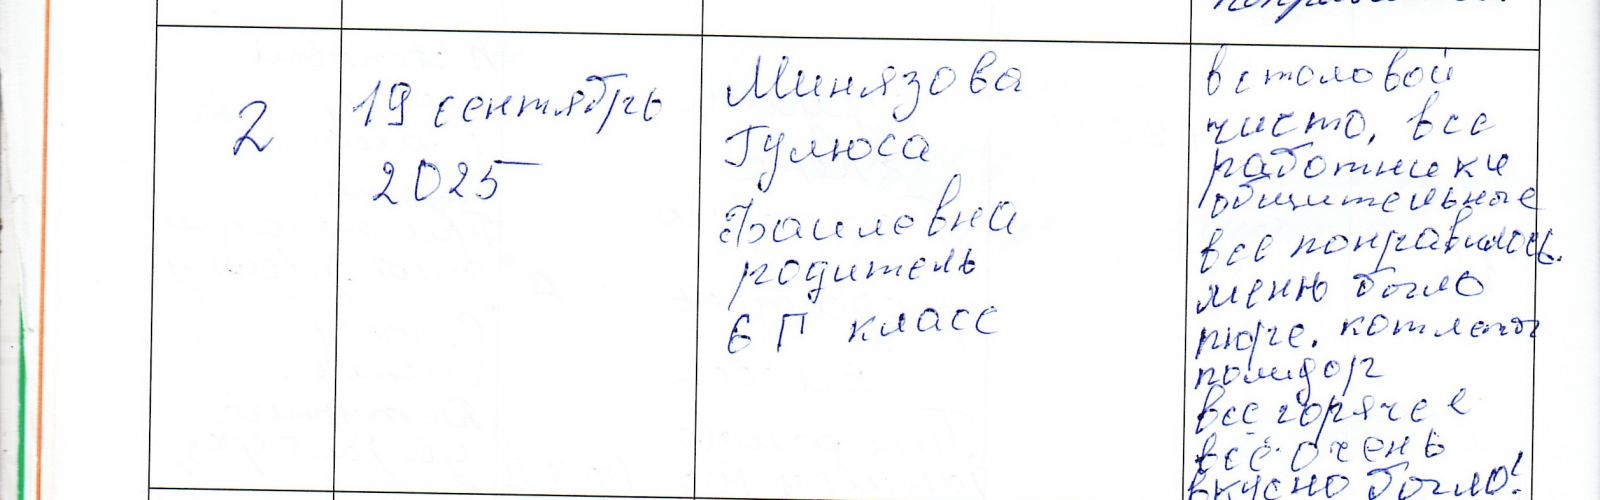 2
19 сентябрь
2025
Минязова
Гулюса
Фаиловна
родитель
6 П класс
в столовой
чисто, все
работники
общительные
все понравилось.
меню было
пюре. котлеты
помидор
все горячее
всё очень
вкусно было!